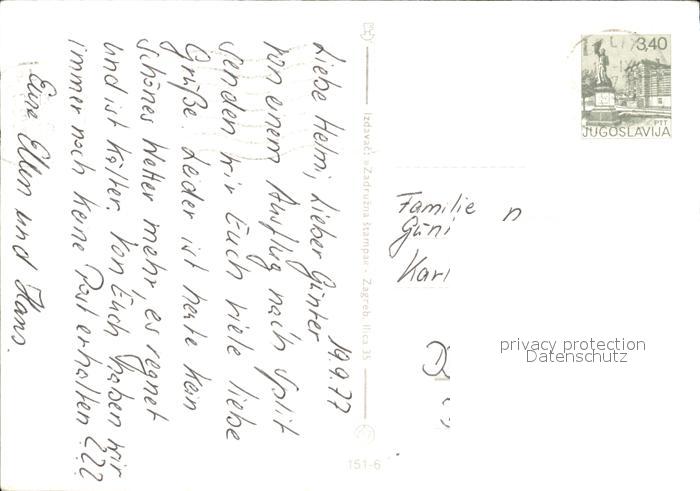 19.9.77
Liebe Helmi, Lieber Günter
Von einem Ausflug nach Split
senden wir Euch viele liebe
Grüße. Leider ist heute kein
schönes Wetter mehr, es regnet
und ist kälter. Von Euch haben wir
immer noch keine Post erhalten ???
Eure Ellen und Hans.
Izdavač: »Zadružna štampa« - Zagreb, Ilica 35
151-6
3,40
PTT
JUGOSLAVIJA
Familie n
Günt
Karl
privacy protection
Datenschutz